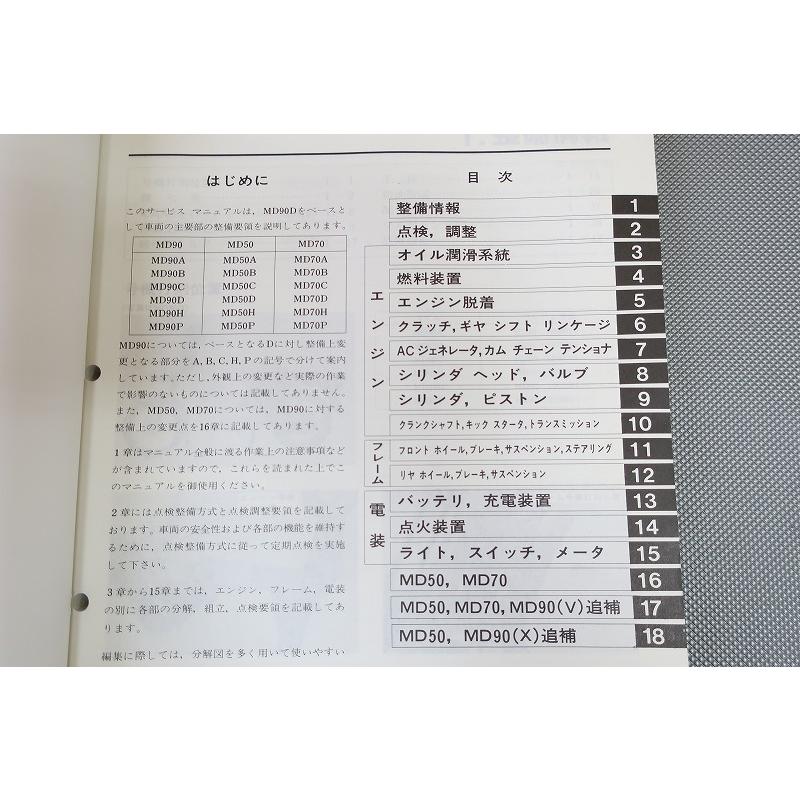 はじめに
このサービス マニュアルは，MD90Dをベースと
して車両の主要部の整備要領を説明してあります。
MD90 MD50 MD70
MD90A MD50A MD70A
MD90B MD50B MD70B
MD90C MD50C MD70C
MD90D MD50D MD70D
MD90H MD50H MD70H
MD90P MD50P MD70P
MD90については，ベースとなるDに対し整備上変
更となる部分をA, B, C, H, Pの記号で分けて案内
しています。ただし，外観上の変更など実際の作業
で影響のないものについては記載してありません。
また，MD50, MD70については，MD90に対する
整備上の変更点を16章に記載してあります。
1章はマニュアル全般に渡る作業上の注意事項など
が含まれていますので，これらを読まれた上でこ
のマニュアルを御使用ください。
2章には点検整備方式と点検調整要領を記載して
おります。車両の安全性および各部の機能を維持す
るために，点検整備方式に従って定期点検を実施
して下さい。
3章から15章までは，エンジン，フレーム，電装
の別に各部の分解，組立，点検要領を記載してあ
ります。
編集に際しては，分解図を多く用いて使いやすい
目次
整備情報 1
点検，調整 2
エンジン
オイル潤滑系統 3
燃料装置 4
エンジン脱着 5
クラッチ，ギヤ シフト リンケージ 6
ACジェネレータ，カム チェーン テンショナ 7
シリンダ ヘッド，バルブ 8
シリンダ，ピストン 9
クランクシャフト，キック スタータ，トランスミッション 10
フレーム
フロント ホイール，ブレーキ，サスペンション，ステアリング 11
リヤ ホイール，ブレーキ，サスペンション 12
電装
バッテリ，充電装置 13
点火装置 14
ライト，スイッチ，メータ 15
MD50，MD70 16
MD50，MD70，MD90(V)追補 17
MD50，MD90(X)追補 18